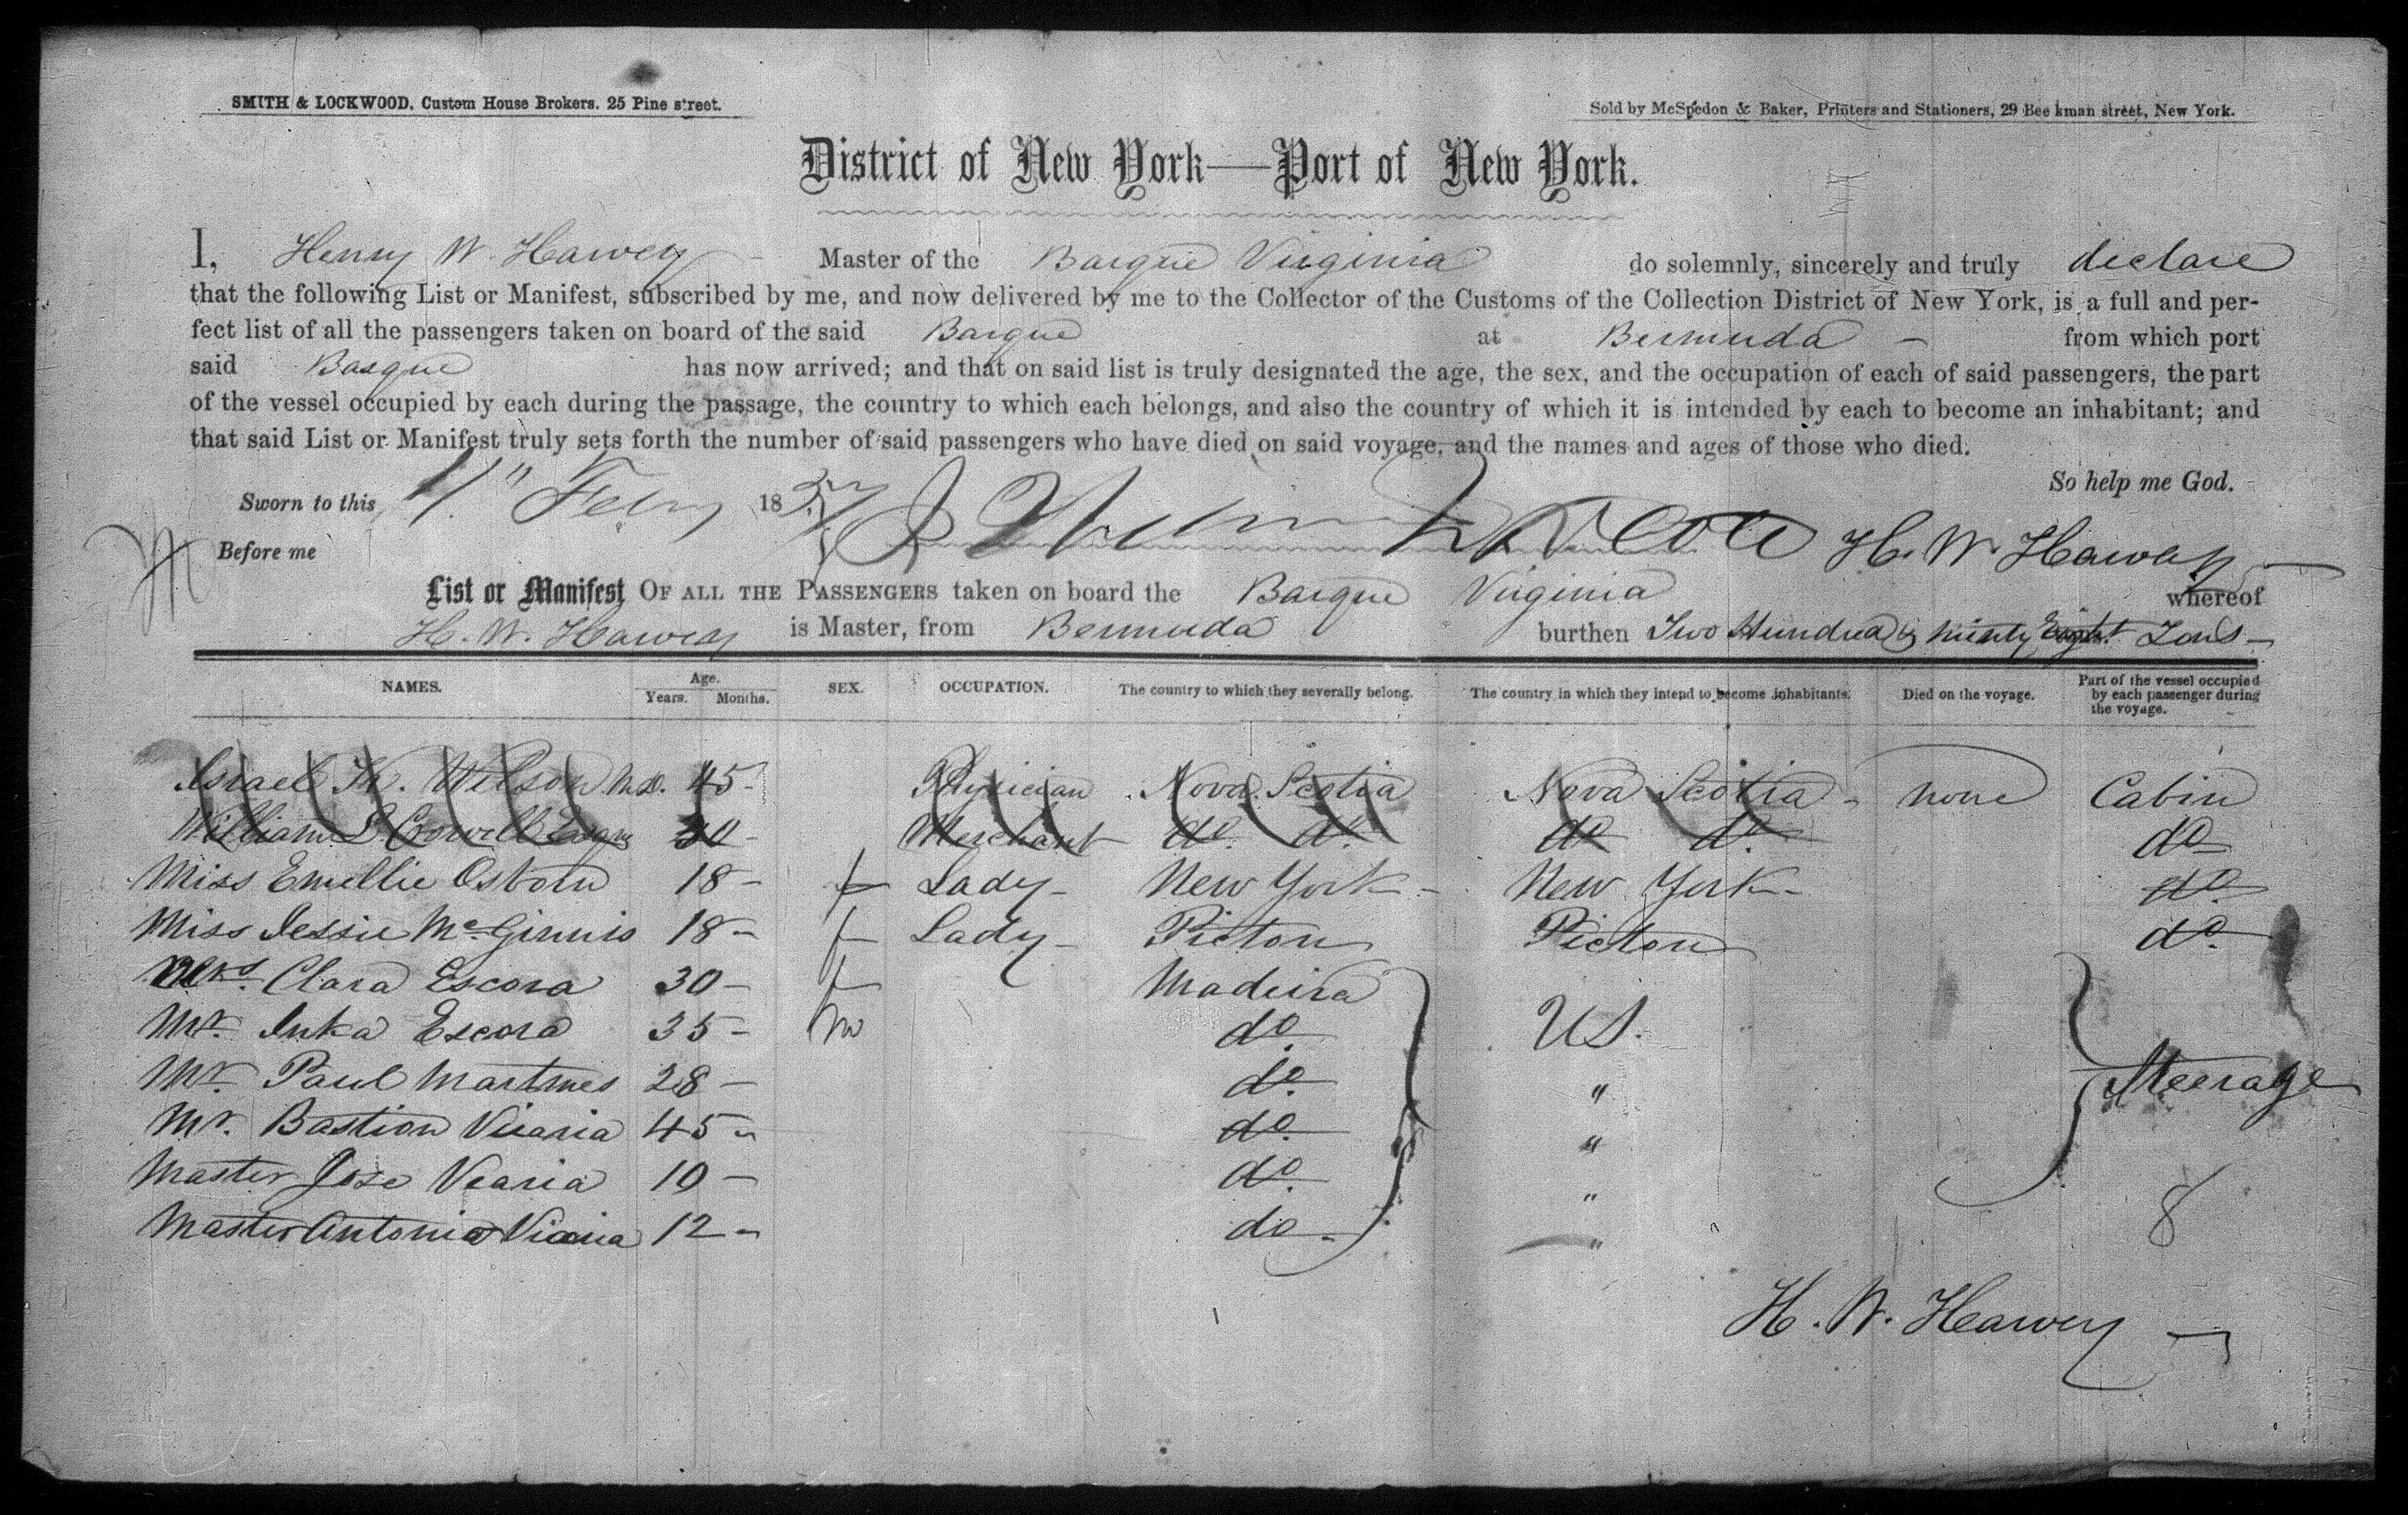 SMITH & LOCKWOOD, Custom House Brokers. 25 Pine street.
Sold by McSpedon & Baker, Printers and Stationers, 29 Beekman street, New York.
District of New York—Port of New York.
I, Henry W. Harvey Master of the Barque Virginia do solemnly, sincerely and truly declare
that the following List or Manifest, subscribed by me, and now delivered by me to the Collector of the Customs of the Collection District of New York, is a full and per-
fect list of all the passengers taken on board of the said Barque at Bermuda from which port
said Barque has now arrived; and that on said list is truly designated the age, the sex, and the occupation of each of said passengers, the part
of the vessel occupied by each during the passage, the country to which each belongs, and also the country of which it is intended by each to become an inhabitant; and
that said List or Manifest truly sets forth the number of said passengers who have died on said voyage, and the names and ages of those who died.
So help me God.
Sworn to this Feby 1857
Before me H. W. Harvey
List or Manifest OF ALL THE PASSENGERS taken on board the Barque Virginia whereof
H. W. Harvey is Master, from Bermuda burthen Two Hundred & Ninty Eight Tons
NAMES. Age. Years. Months. SEX. OCCUPATION. The country to which they severally belong. The country in which they intend to become inhabitants. Died on the voyage. Part of the vessel occupied by each passenger during the voyage.
Israel Wilson M.D. 45 Physician Nova Scotia Nova Scotia none Cabin
William Merchant do do do do do
Miss Emellie Osborn 18 f Lady New York New York do
Miss Jessie McGinnis 18 f Lady Picton Picton do
Mrs Clara Escora 30 f Madeira
Mr. Inka Escora 35 m do U.S.
Mr. Paul Martines 28 do " Steerage
Mr. Bastion Viaria 45 do "
Master Jose Vearia 10 do "
Master Antonio Viaria 12 do "
8
H. W. Harvey